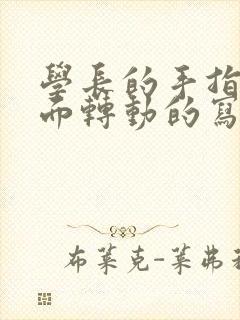 學長的手指
而轉動的寫
布萊克-萊弗利